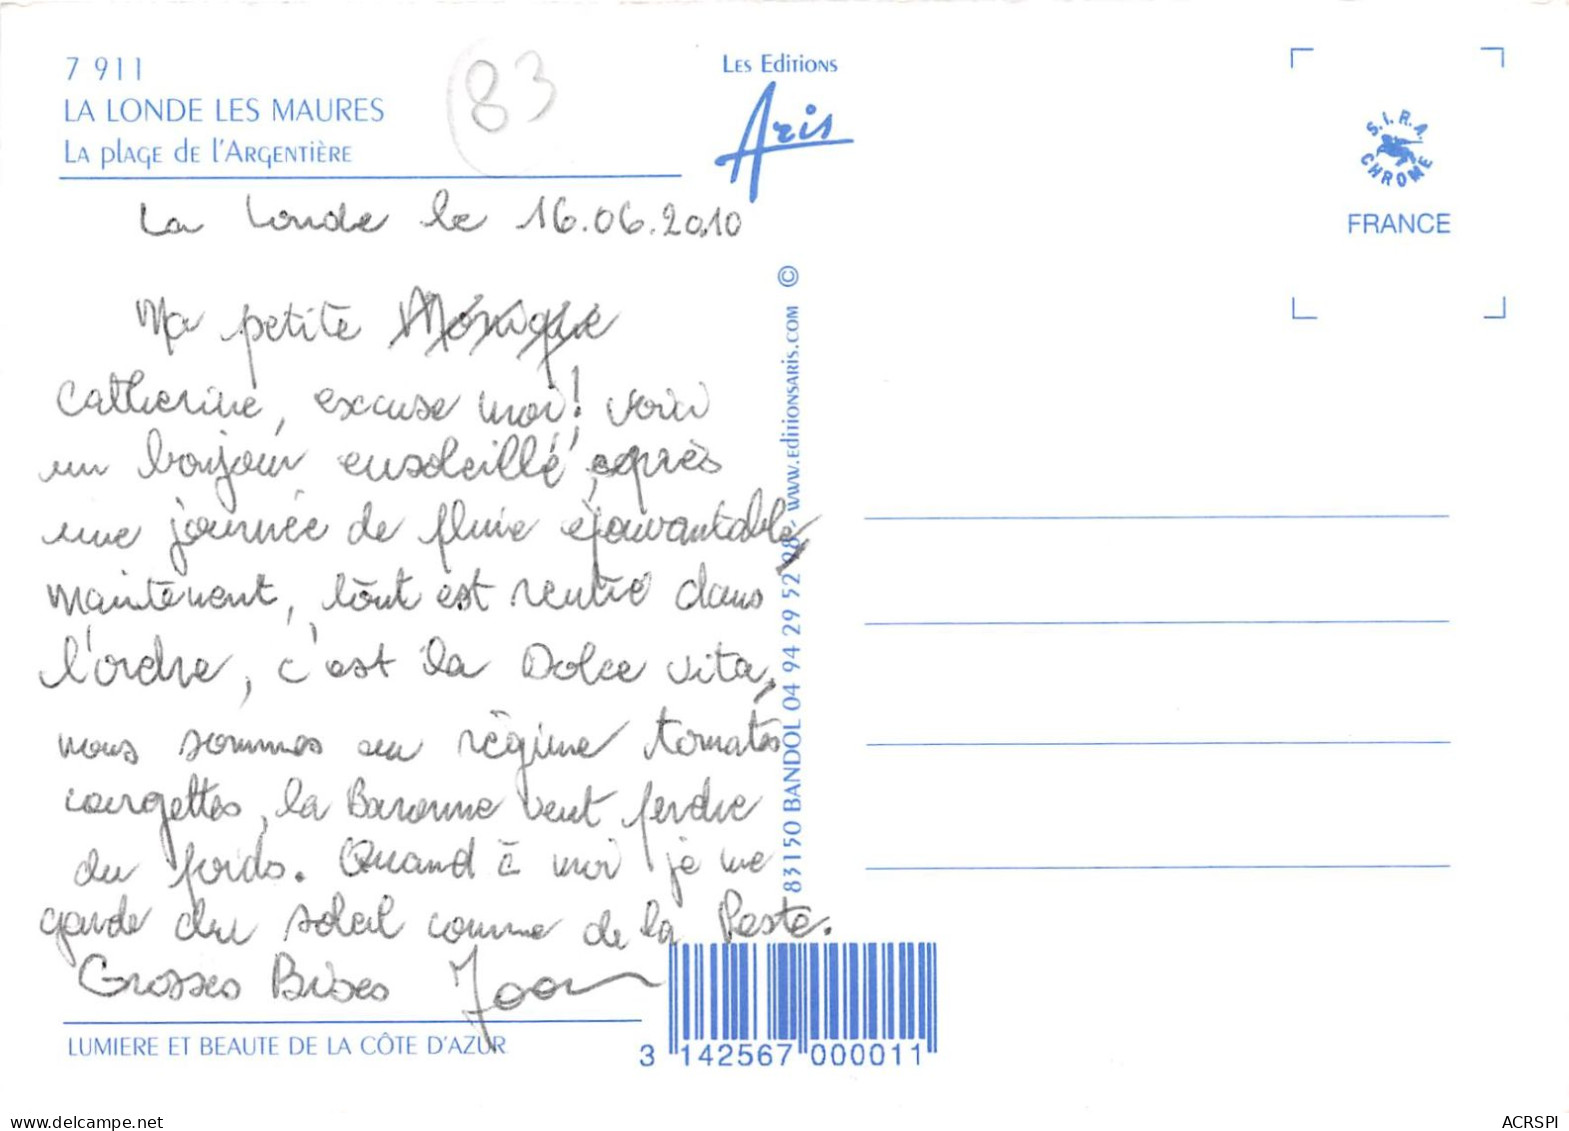 7 911
LA LONDE LES MAURES
LA plAGE dE l'ARGENTIÈRE
83
LES EdITIONS
Aris
S.I.R.A. CHROME
FRANCE
La Londe le 16.06.2010
Ma petite Monique
Catherine, excuse moi! voici
un bonjour ensoleillé, après
une journée de pluie épouvantable,
maintenant, tout est rentré dans
l'ordre, c'est la Dolce vita,
nous sommes au régime tomates
courgettes, la Baronne veut perdre
du poids. Quand à moi je me
garde du soleil comme de la Peste.
Grosses Bises
83150 BANDOL 04 94 29 52 98 - WWW.EDITIONSARIS.COM ©
LUMIERE ET BEAUTE DE LA CÔTE D'AZUR
3 142567 000011
ACRSPI